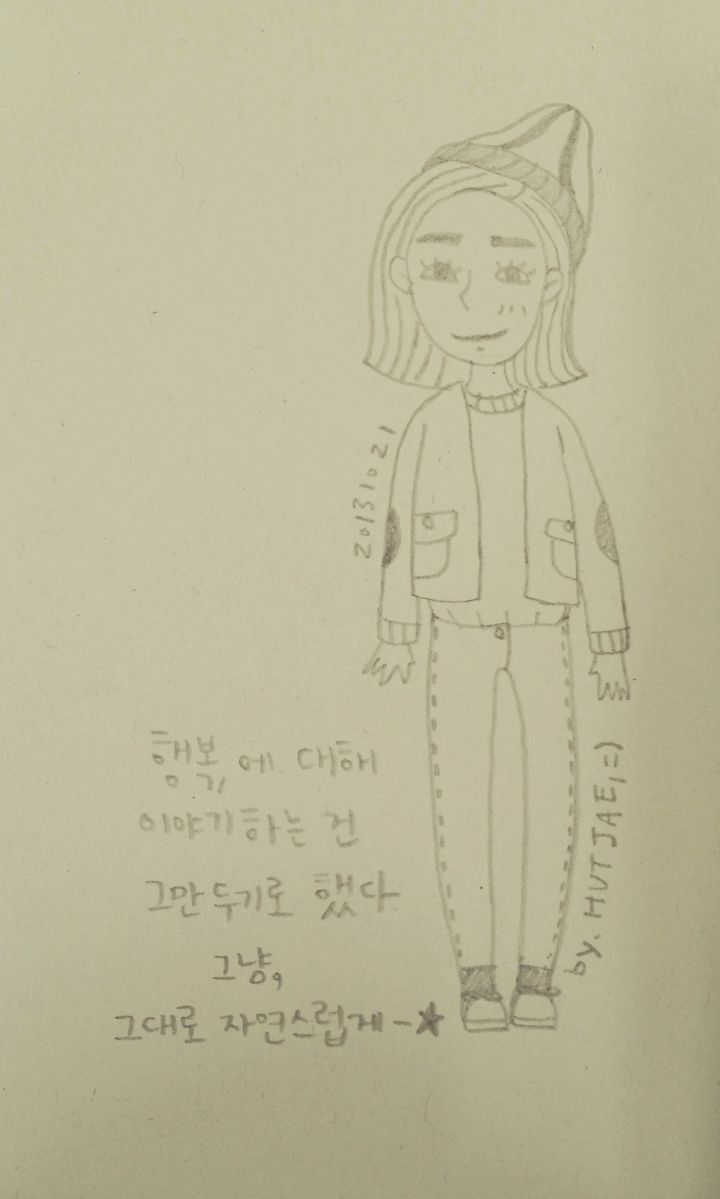 20131021
행복, 에 대해
이야기하는 건
그만두기로 했다
그냥,
그대로 자연스럽게-★
by. HUTJAE, =)